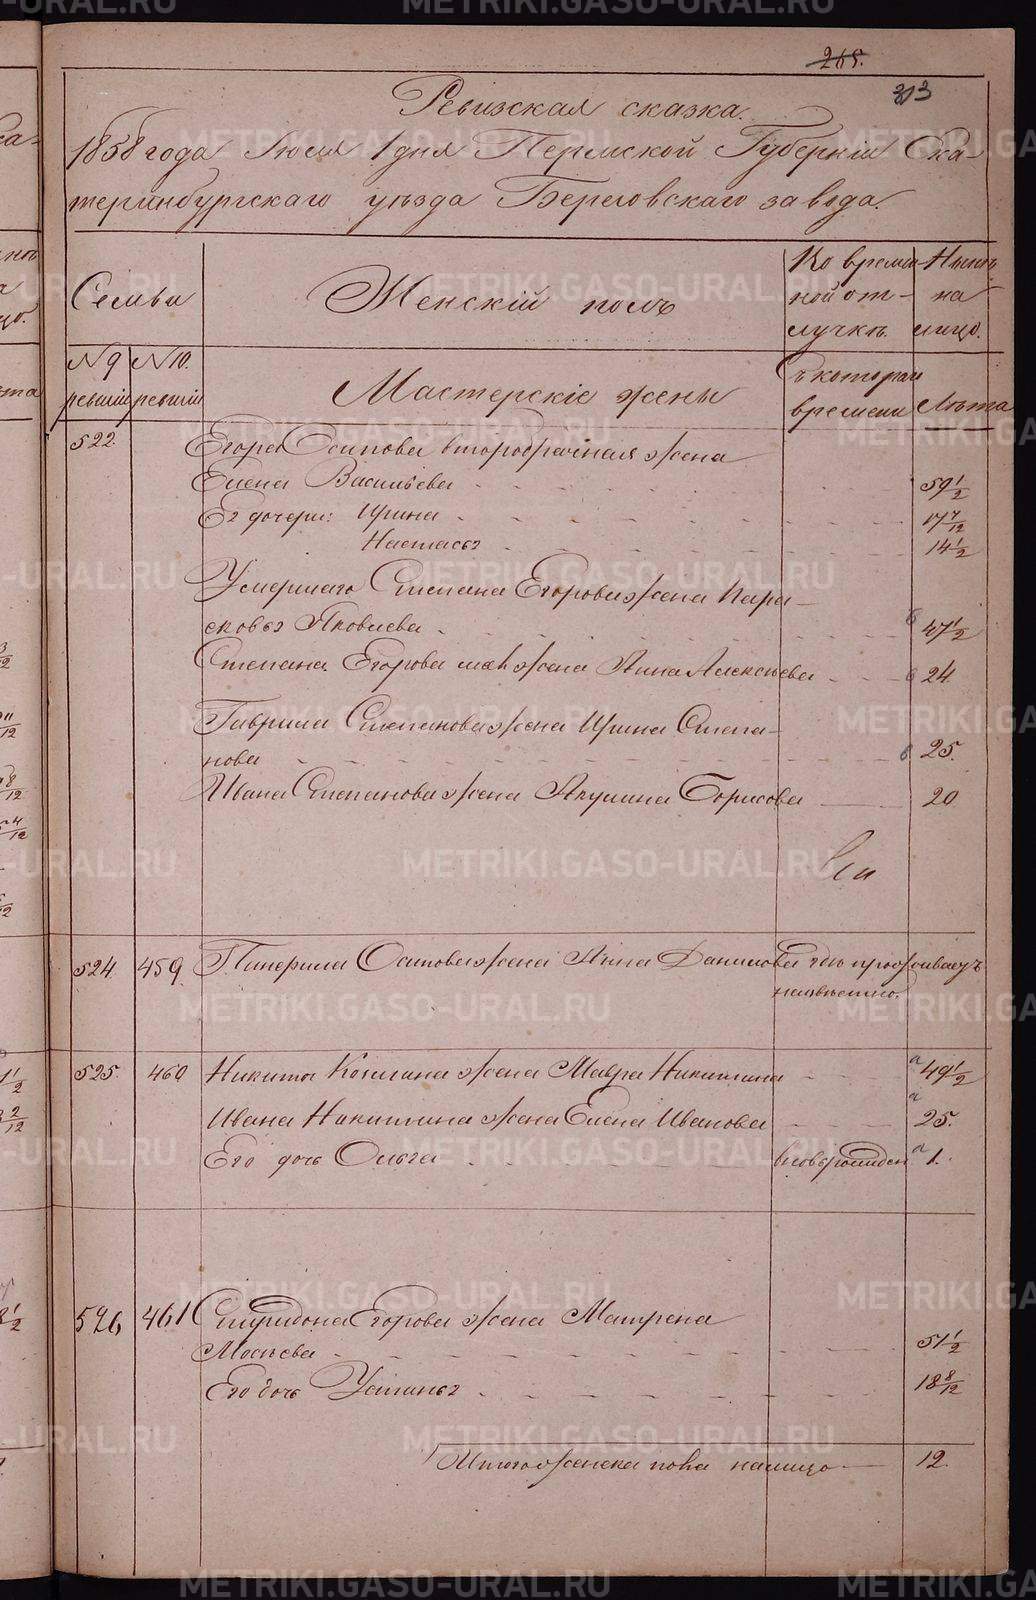 265.
313
Ревизская сказка.
1858 года Июля 1 дня Пермской Губерніи Ека-
теринбургскаго уѣзда Березовскаго завода.
Семьи
Женскій полъ
Во времен-
ной от-
лучкѣ.
Нынѣ
на
лицо.
№ 9
ревизіи
№ 10.
ревизіи
Мастерскіе жены
Съ котораго
времени
Лѣта
522.
Егора Осипова второбрачная жена
Елена Васильева 59 1/2
Ег дочери: Ирина 17 7/12
Настасья 14 1/2
Умершаго Степана Егорова жена Пара-
сковья Яковлева 47 1/2
Степана Егорова жена Анна Алексѣева 24
Гаврила Степанова жена Ирина Степа-
нова 25.
Ивана Степанова жена Акулина Борисова 20
524. 459 Осипова жена Анна Данилова гдѣ проживаетъ
неизвѣстно.
525. 460 Никиты Козмина жена Мавра Никитина а 49 1/2
Ивана Никитина жена Елена Иванова а 25.
Его дочь Ольга вновьрожден а 1.
526 461 Спиридона Егорова жена Матрена
Мосѣева 51 1/2
Его дочь Устинья 18 8/12
Итого женска пола налицо 12.
METRIKI.GASO-URAL.RU